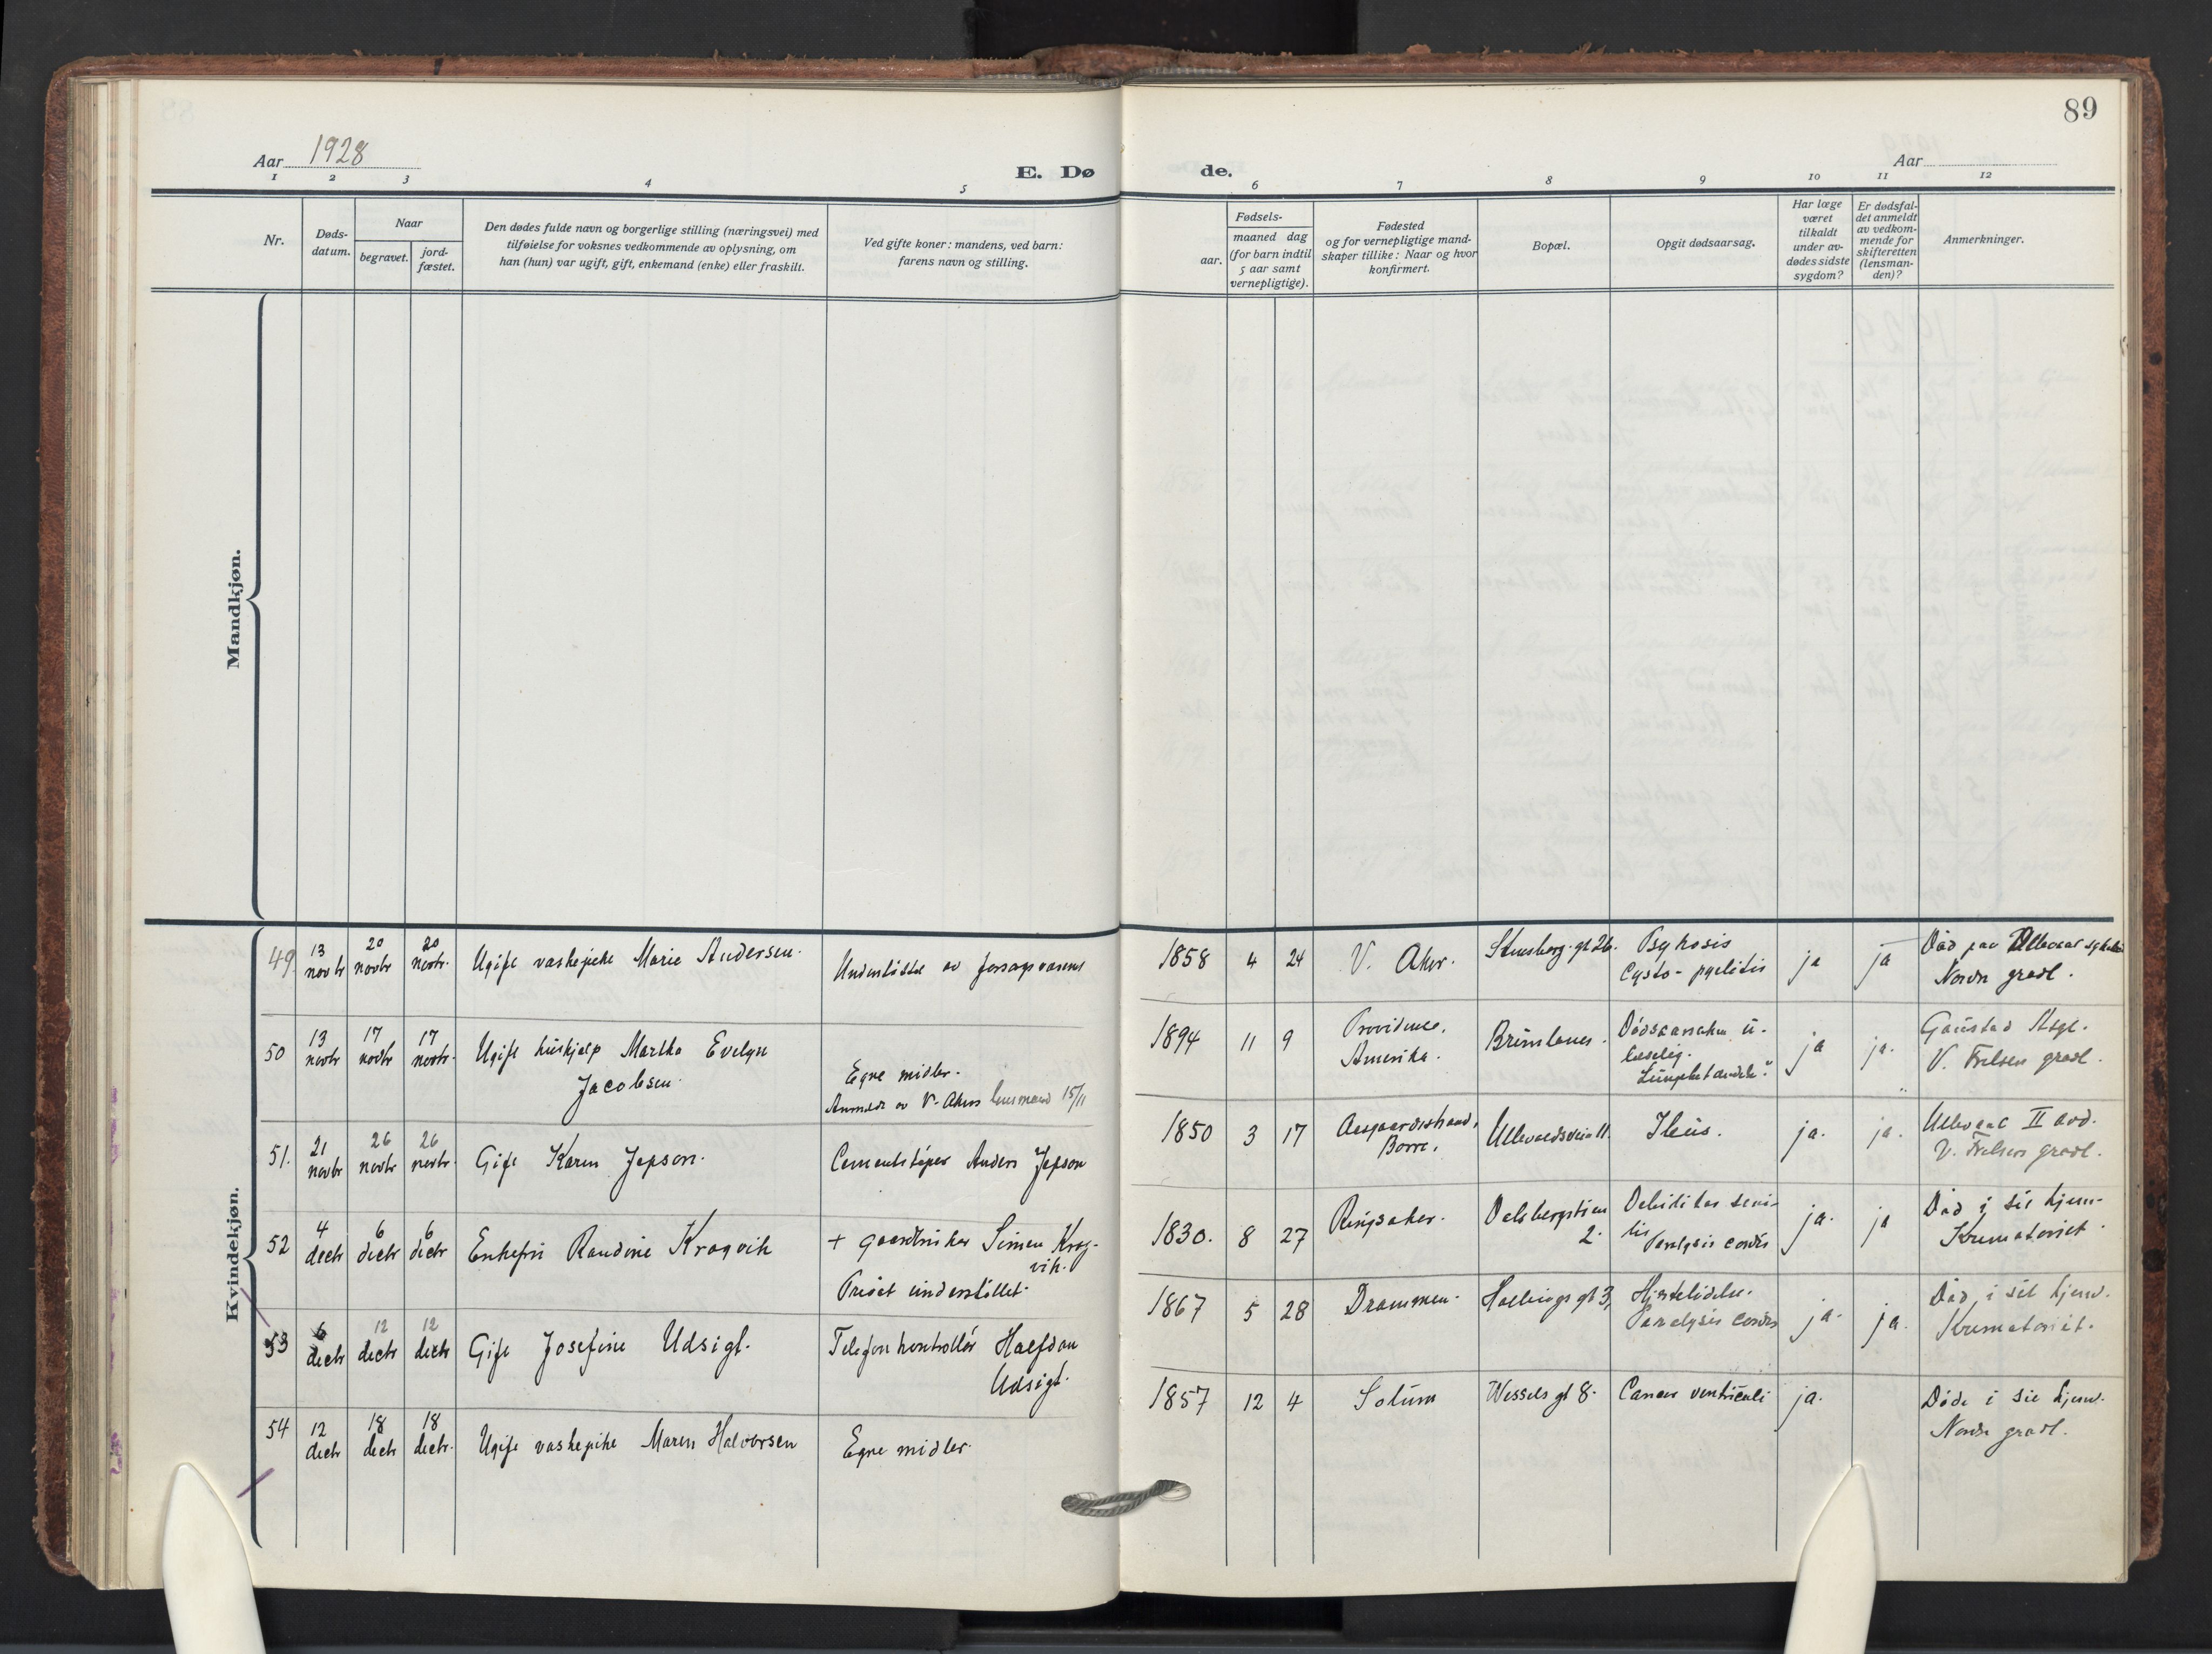 89
Aar 1928
E. Dø
de.
Aar
1 2 3 4 5 6 7 8 9 10 11 12
Nr.
Døds-
datum.
Naar
begravet.
jord-
fæstet.
Den dødes fulde navn og borgerlige stilling (næringsvei) med
tilføielse for voksnes vedkommende av oplysning, om
han (hun) var ugift, gift, enkemand (enke) eller fraskilt.
Ved gifte koner: mandens, ved barn:
farens navn og stilling.
aar.
Fødsels-
maaned dag
(for barn indtil
5 aar samt
vernepligtige).
Fødested
og for vernepligtige mand-
skaper tillike: Naar og hvor
konfirmert.
Bopæl.
Opgit dødsaarsag.
Har læge
været
tilkaldt
under av-
dødes sidste
sygdom?
Er dødsfal-
det anmeldt
av vedkom-
mende for
skifteretten
(lensman-
den)?
Anmerkninger.
Mandkjøn.
Kvindekjøn.
49 13 novbr 20 novbr 20 novbr. Ugift vaskepike Marie Andersen. Understøttet av forsorgsvæsenet
1858 4 24 V. Aker. Stensberg. gt 26. Psykosis
Cysto-pyelitis ja ja Død paa Ullevaal sykehus
Nordre gravl.
50 13 novbr 17 novbr 17 novbr. Ugift hushjelp Martha Evelyn
Jacobsen.
Egne midler.
Anmeldt av V. Akers lensmand 15/11
1894 11 9 Providence,
Amerika. Dødsaarsaken u-
læselig.
"Lungebetændelse". ja ja. Gaustad Asyl.
V. Frelsers gravl.
51. 21 novbr 26 novbr 26 novbr. Gift Karen Jepson. Cementstøper Anders Jepson
1850 3 17 Aasgaardsstrand,
Borre. Ullevaalsvein 11. Ileus. ja. ja. Ullevaal II avd.
V. Frelsers gravl.
52 4 decbr 6 decbr 6 decbr Enkefru Randine Krogvik + gaardbruker Simen Krog-
vik.
Privat understøttet.
1830. 8 27 Ringsaker. Dalsbergstien
2. Debilitas seni-
lis
Paralysis cordis ja. ja Død i sit hjem.
Krematoriet.
53 6 decbr 12 decbr 12 decbr Gift Josefine Udsigt. Telefonkontrollør Halfdan
Udsigt.
1867 5 28 Drammen. Hjertelidelse.
Paralysis cordis ja. ja. Død i sit hjem.
Krematoriet.
54 12 decbr 18 decbr 18 decbr. Ugift vaskepike Maren Halvorsen Egne midler.
1857 12 4 Solum Wessels gt 8. Cancer ventriculi ja. Døde i sit hjem.
Nordre gravl.